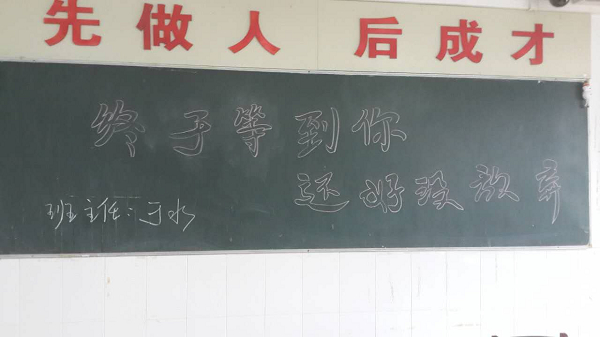 先做人 后成才
终于等到你
还好没放弃
班主任：于水